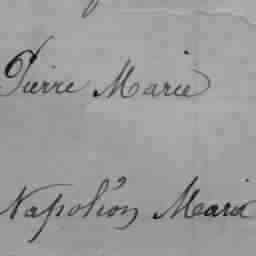 Pierre Marie
Napoléon Marie